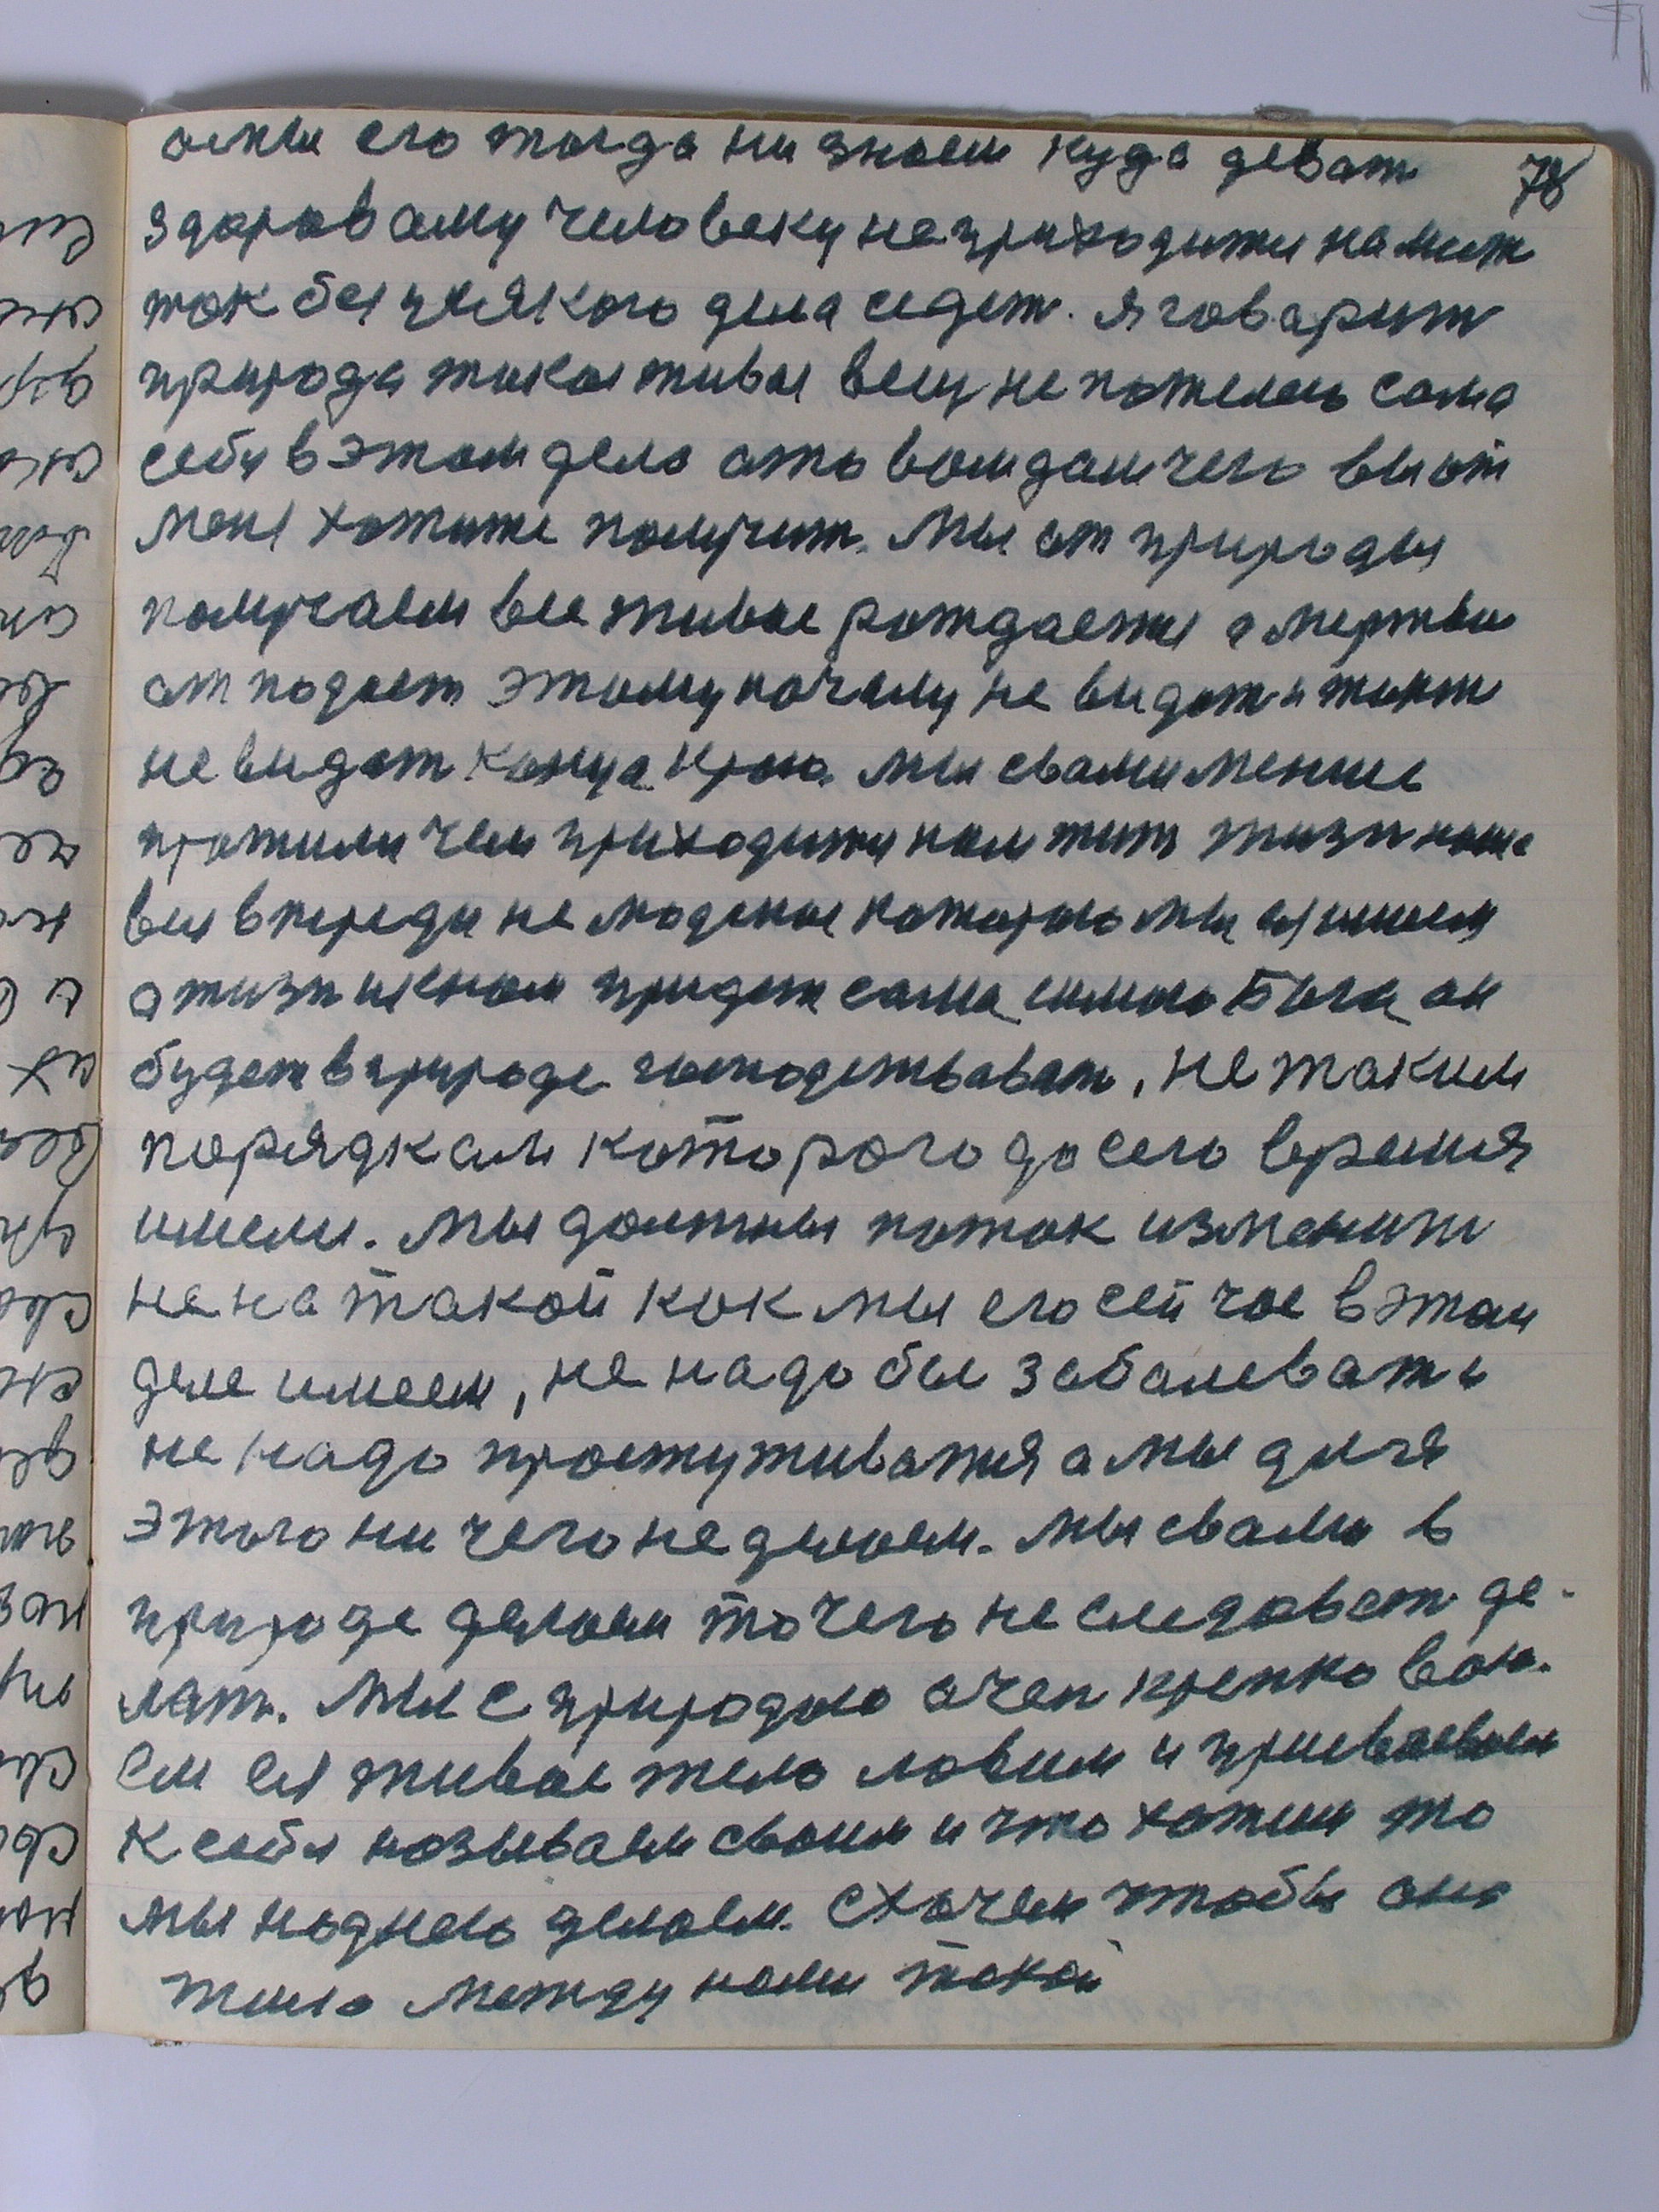 78
амы его тогда ни знаем куда деват
здороваму человеку не приходитси на мит
так без усякого дела седет. Я говарит
природа такая живая вещ не пожелею сама
себя в этом дело ато вам дам чего вы от
меня хотите получит. Мы от природы
получаем все живое рождается а мертвое
отподает этому началу не видат и тонт
не видат конца краю. Мы свами менше
прожили чем приходитси нам жит жизн наша
вся впереди не людская которою мы слышем
а жизн икнам придет сама силою Бога он
будет в природе господствоват, не таким
порядкам которого до сего время
имели. Мы должны поток изменит
не на такой как мы его сейчас в этом
деле имеем, не надо бы заболеват и
не надо простуживатся а мы для
этого ни чего не делаем. Мы свами в
природе делаем то чего не следовает де-
лат. Мы с природою очен крепко вою-
ем ея живое тело ловим и присваеваем
к себя называем своим и что хотим то
мы наднею делаем. Схочем чтобы она
жила между нами такой